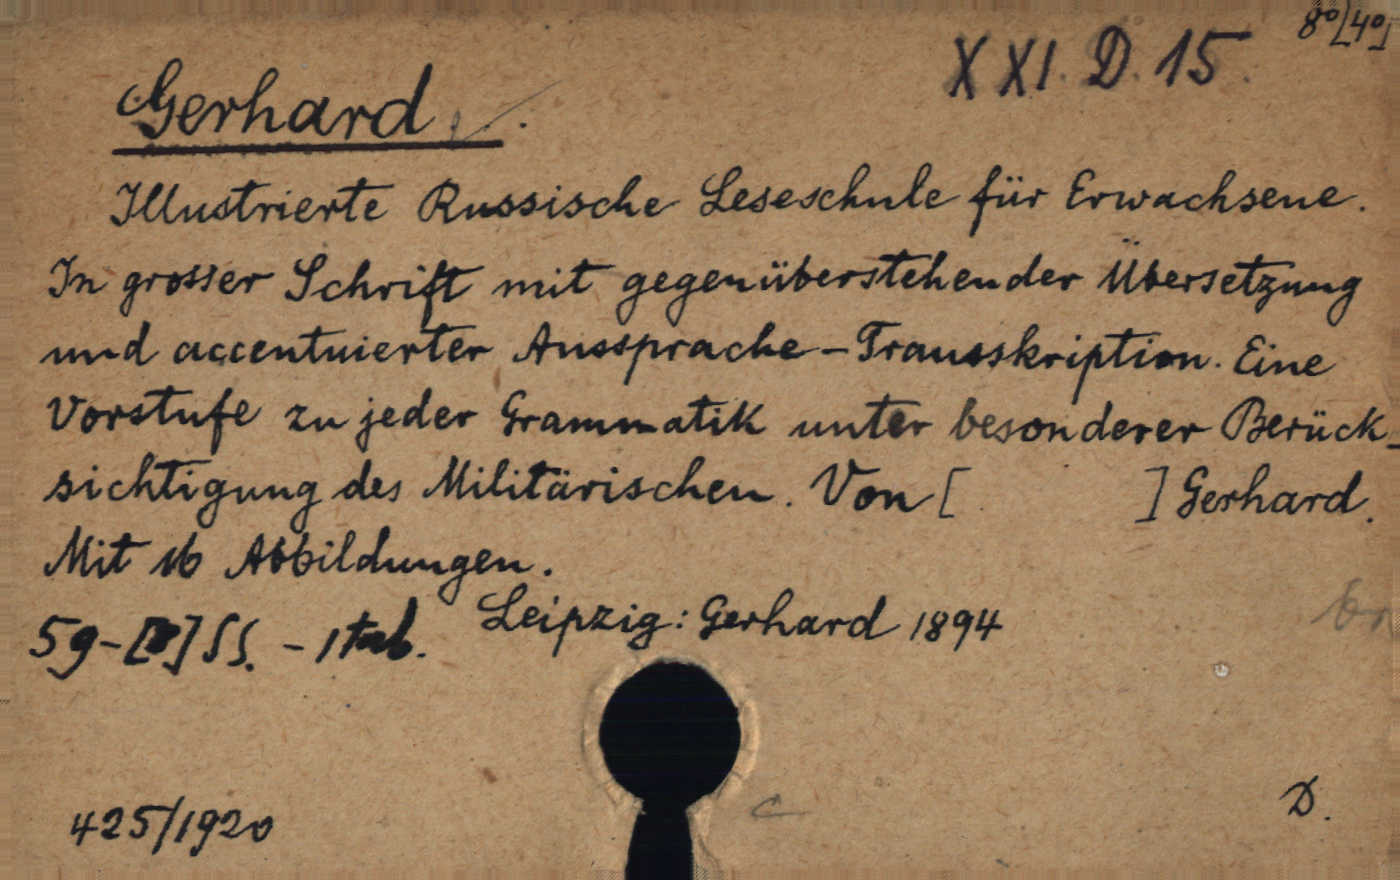 8°[4°]
XXI. D. 15.
Gerhard
Illustrierte Russische Leseschule für Erwachsene.
In grosser Schrift mit gegenüberstehender Übersetzung
und accentuierter Aussprache-Transskription. Eine
Vorstufe zu jeder Grammatik unter besonderer Berück-
sichtigung des Militärischen. Von [ ] Gerhard.
Mit 16 Abbildungen.
Leipzig: Gerhard 1894
59-[ ] SS. - 1 tab.
425/1920
C
D.